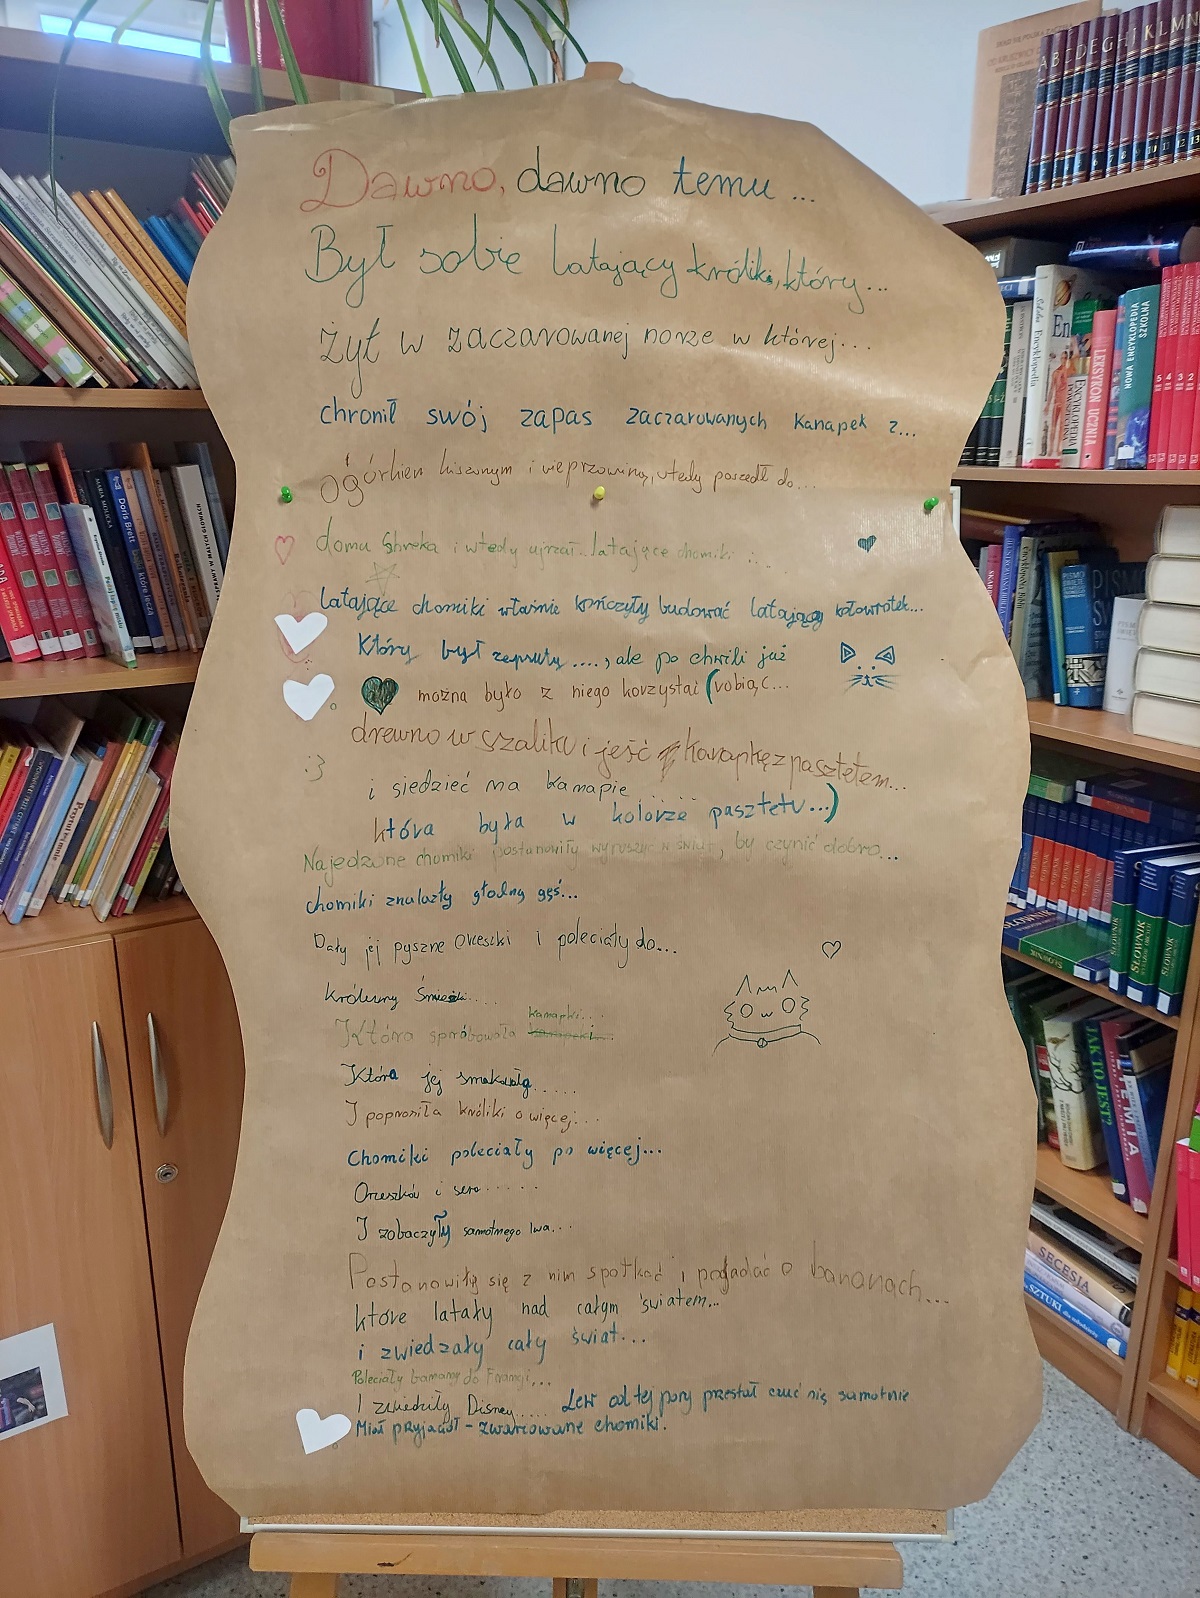 Dawno, dawno temu...
Był sobie latający królik, który...
żył w zaczarowanej norze w której...
chronił swój zapas zaczarowanych kanapek z...
Ogórkiem kiszonym i wieprzowiną, wtedy poszedł do...
domu Shreka i wtedy ujrzał.. latające chomiki ....
latające chomiki właśnie kończyły budować latający kołowrotek...
Który był zepsuty...., ale po chwili już
można było z niego korzystać (robiąc...
drewno w szaliku i jeść kanapkę z pasztetem...
:3
i siedzieć na kanapie .....
która była w kolorze pasztetu...)
Najedzone chomiki postanowiły wyruszyć w świat, by czynić dobro...
chomiki znalazły głodną gęś...
Dały jej pyszne orzeszki i poleciały do...
królewny Śnieżki.....
kanapki...
Która spróbowała kanapki....
Która jej smakowała.....
I poprosiła króliki o więcej...
Chomiki poleciały po więcej...
Orzeszków i sera......
I zobaczyły samotnego lwa...
Postanowiły się z nim spotkać i pogadać o bananach...
które latały nad całym światem...
i zwiedzały cały świat...
Poleciały banany do Francji...
I zwiedziły Disney..... Lew od tej pory przestał czuć się samotnie
Miał przyjaciół - zwariowane chomiki.
A B C D E G H I J K L M N
LEKSYKON UCZNIA
NOWA ENCYKLOPEDIA SZKOLNA
5 4 3 2
MARIA MOLICKA
Doris Brett
Przytul mnie
SŁOWNIK
SŁOWNIK
SŁOWNIK
JAK TO JEST?
SECESJA
SZTUKI dla młodzieży